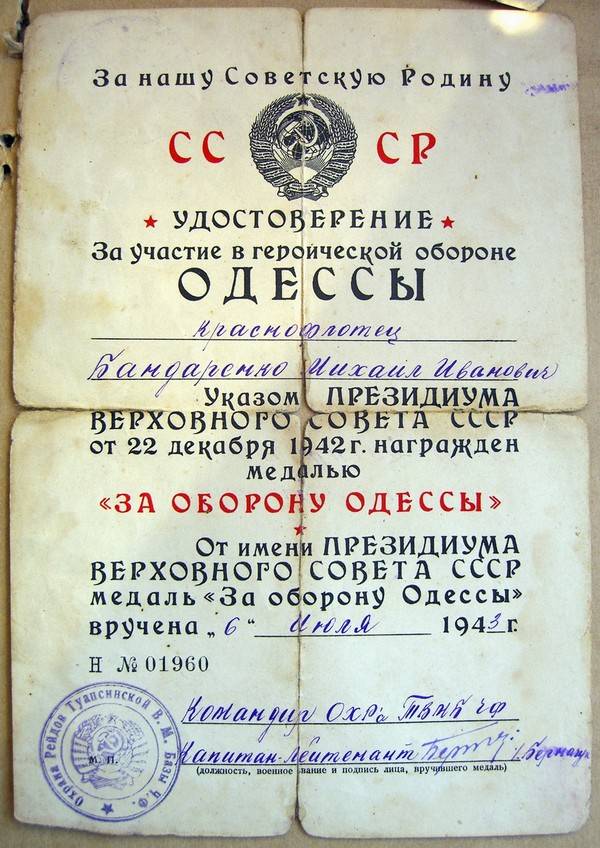 За нашу Советскую Родину
СССР
УДОСТОВЕРЕНИЕ
За участие в героической обороне
ОДЕССЫ
Краснофлотец
Бандаренко Михаил Иванович
Указом ПРЕЗИДИУМА
ВЕРХОВНОГО СОВЕТА СССР
от 22 декабря 1942 г. награжден
медалью
«ЗА ОБОРОНУ ОДЕССЫ»
От имени ПРЕЗИДИУМА
ВЕРХОВНОГО СОВЕТА СССР
медаль «За оборону Одессы»
вручена „6“ Июля 1943 г.
Н № 01960
Командир ОХРа ТВМБ ЧФ
Капитан-Лейтенант
м. п.
(должность, военное звание и подпись лица, вручившего медаль)
Охрана Рейдов Туапсинской В. М. Базы Ч. Ф.